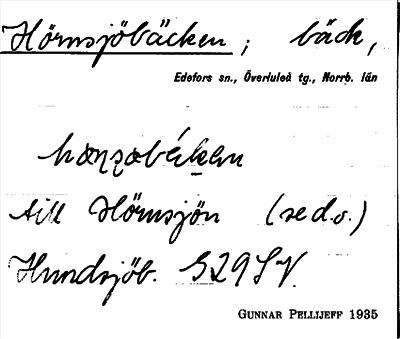 Hörnsjöbäcken; bäck,
Edefors sn., Överluleå tg., Norrb. län
till Hörnsjön (se d.o.)
Hundsjöb. S29SV.
GUNNAR PELLIJEFF 1935